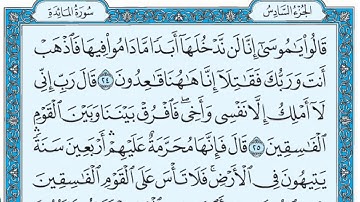 سُورَةُ المَائِدَةِ الجُزْءُ السَّادِسُ
قَالُوا۟ يَٰمُوسَىٰٓ إِنَّا لَن نَّدْخُلَهَآ أَبَدًا مَّا دَامُوا۟ فِيهَا فَٱذْهَبْ
أَنتَ وَرَبُّكَ فَقَٰتِلَآ إِنَّا هَٰهُنَا قَٰعِدُونَ ٢٤ قَالَ رَبِّ إِنِّى
لَآ أَمْلِكُ إِلَّا نَفْسِى وَأَخِى ۖ فَٱفْرُقْ بَيْنَنَا وَبَيْنَ ٱلْقَوْمِ
ٱلْفَٰسِقِينَ ٢٥ قَالَ فَإِنَّهَا مُحَرَّمَةٌ عَلَيْهِمْ ۛ أَرْبَعِينَ سَنَةً ۛ
يَتِيهُونَ فِى ٱلْأَرْضِ ۚ فَلَا تَأْسَ عَلَى ٱلْقَوْمِ ٱلْفَٰسِقِينَ